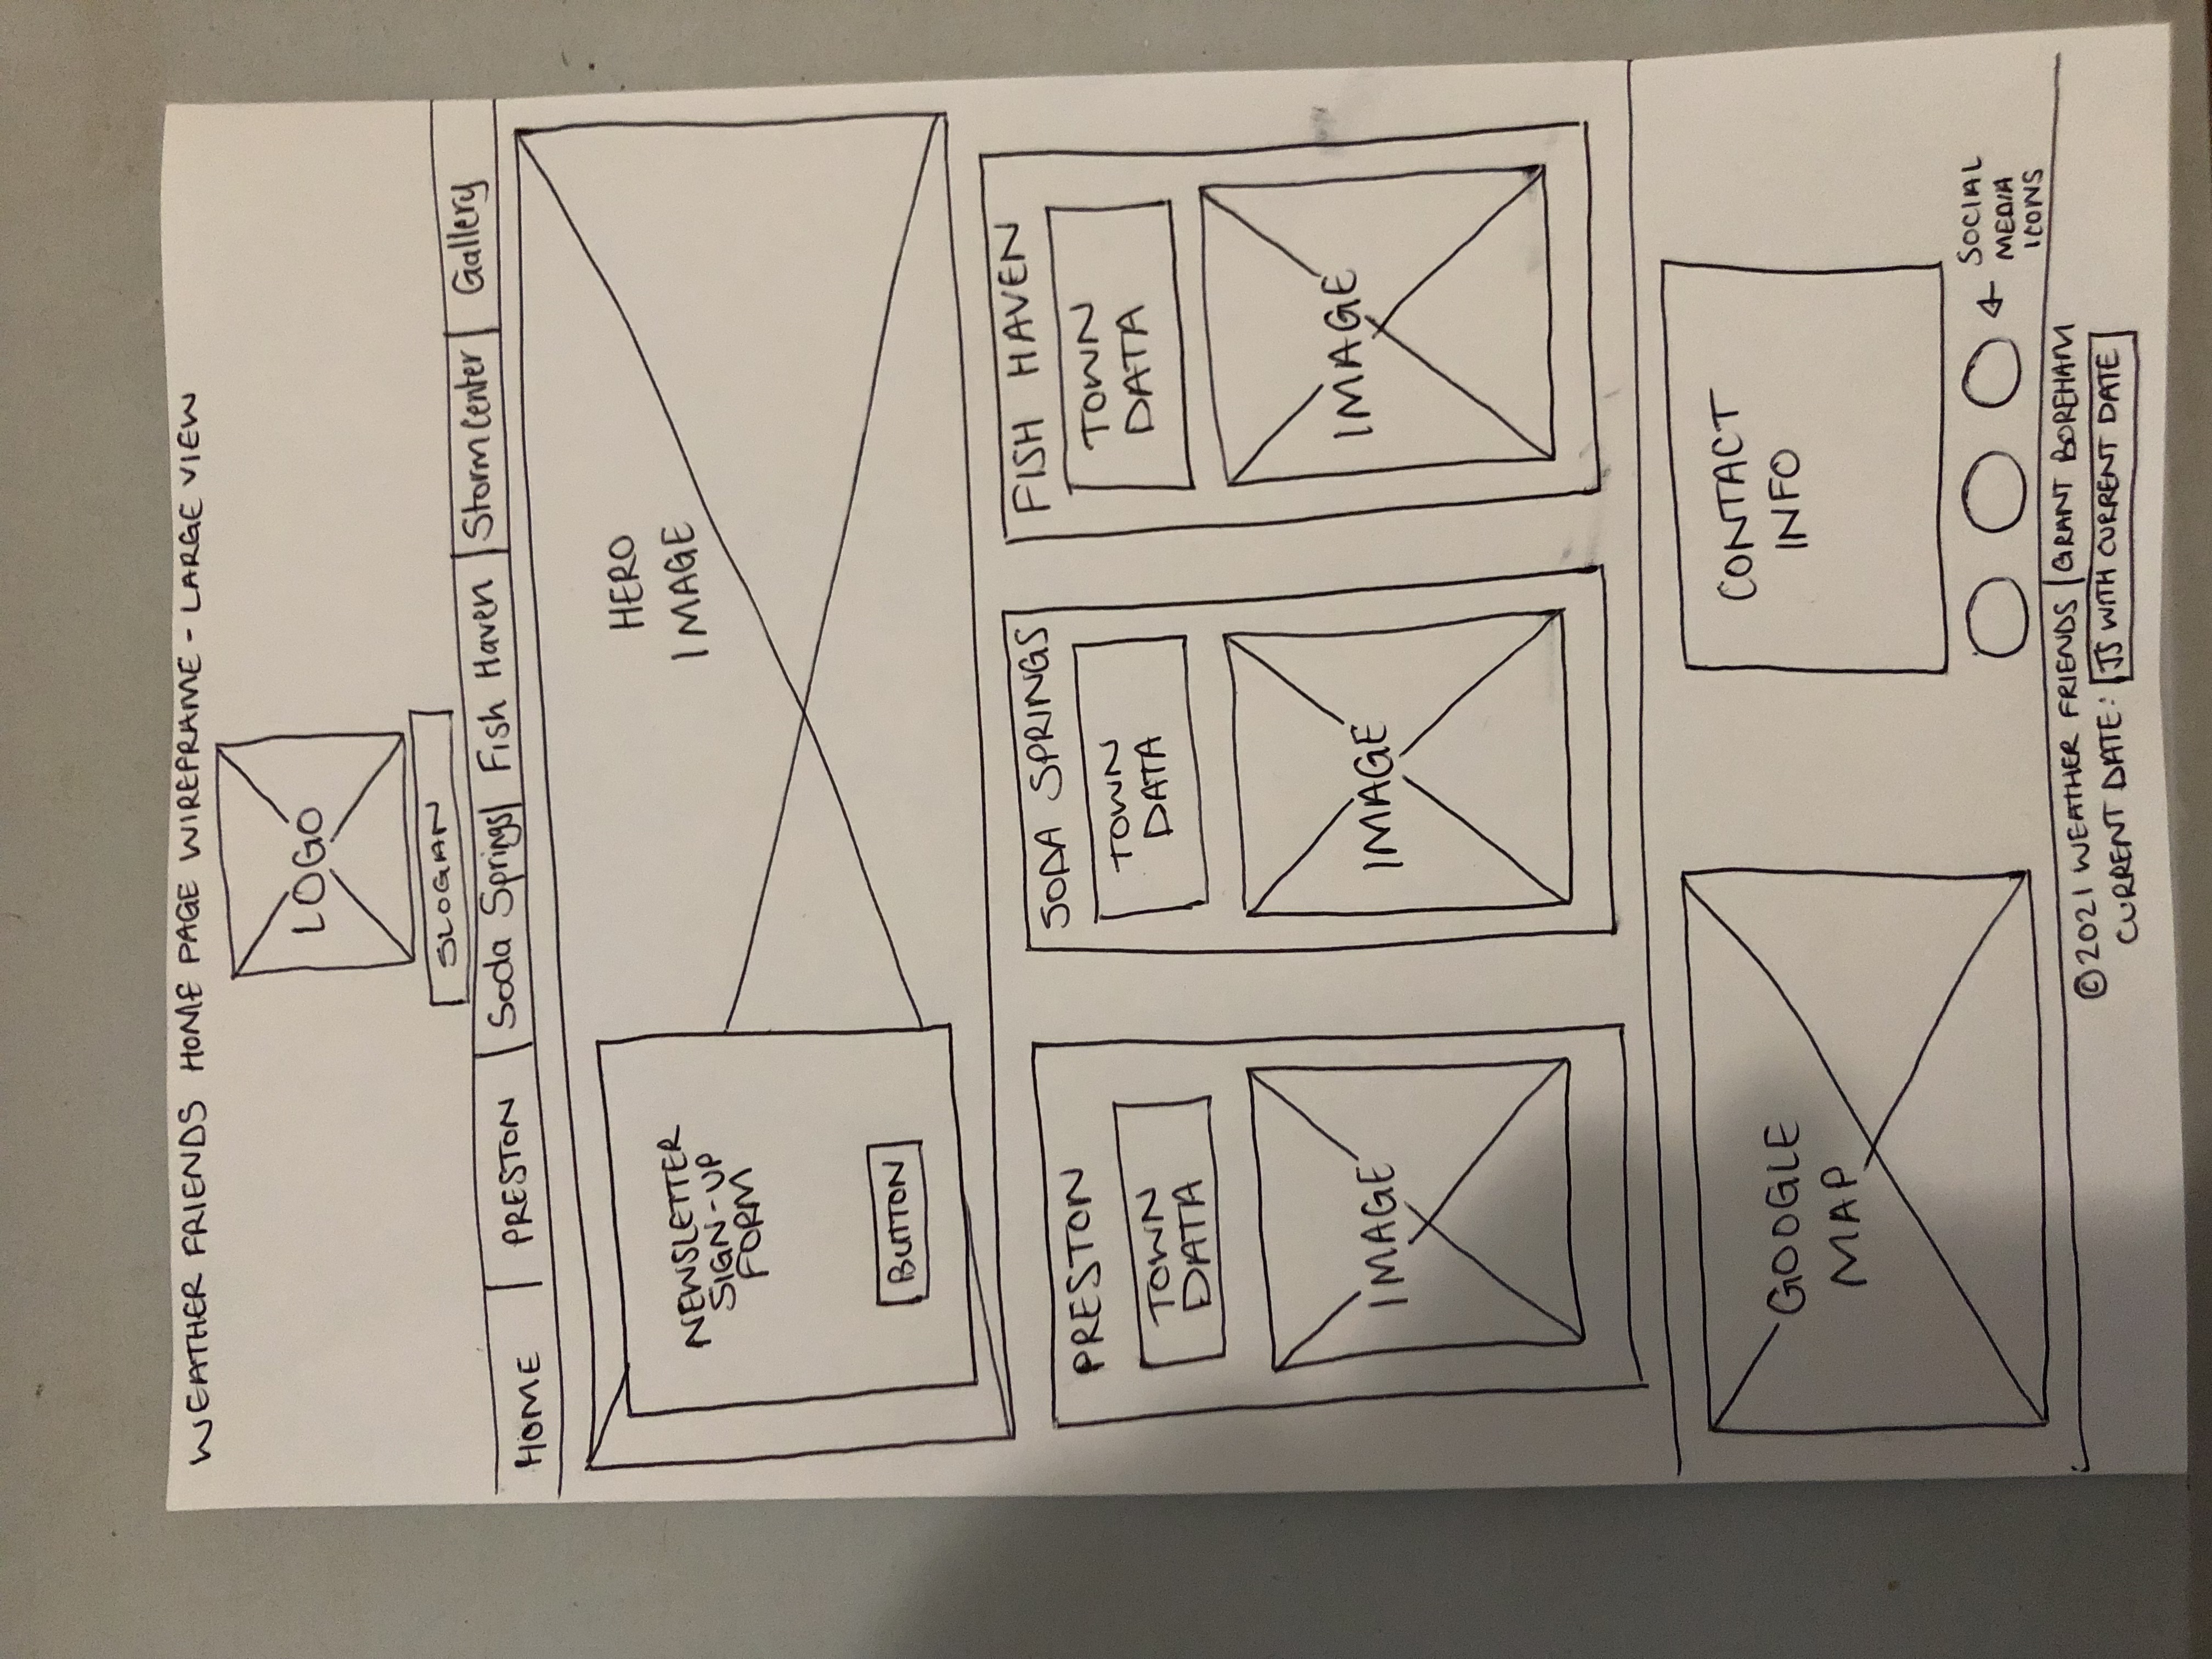 WEATHER FRIENDS HOME PAGE WIREFRAME - LARGE VIEW
LOGO
SLOGAN
HOME | PRESTON | Soda Springs | Fish Haven | Storm Center | Gallery
NEWSLETTER
SIGN-UP
FORM
BUTTON
HERO
IMAGE
PRESTON
TOWN
DATA
IMAGE
SODA SPRINGS
TOWN
DATA
IMAGE
FISH HAVEN
TOWN
DATA
IMAGE
GOOGLE
MAP
CONTACT
INFO
SOCIAL
MEDIA
ICONS
©2021 WEATHER FRIENDS | GRANT BOREHAM
CURRENT DATE: JS WITH CURRENT DATE